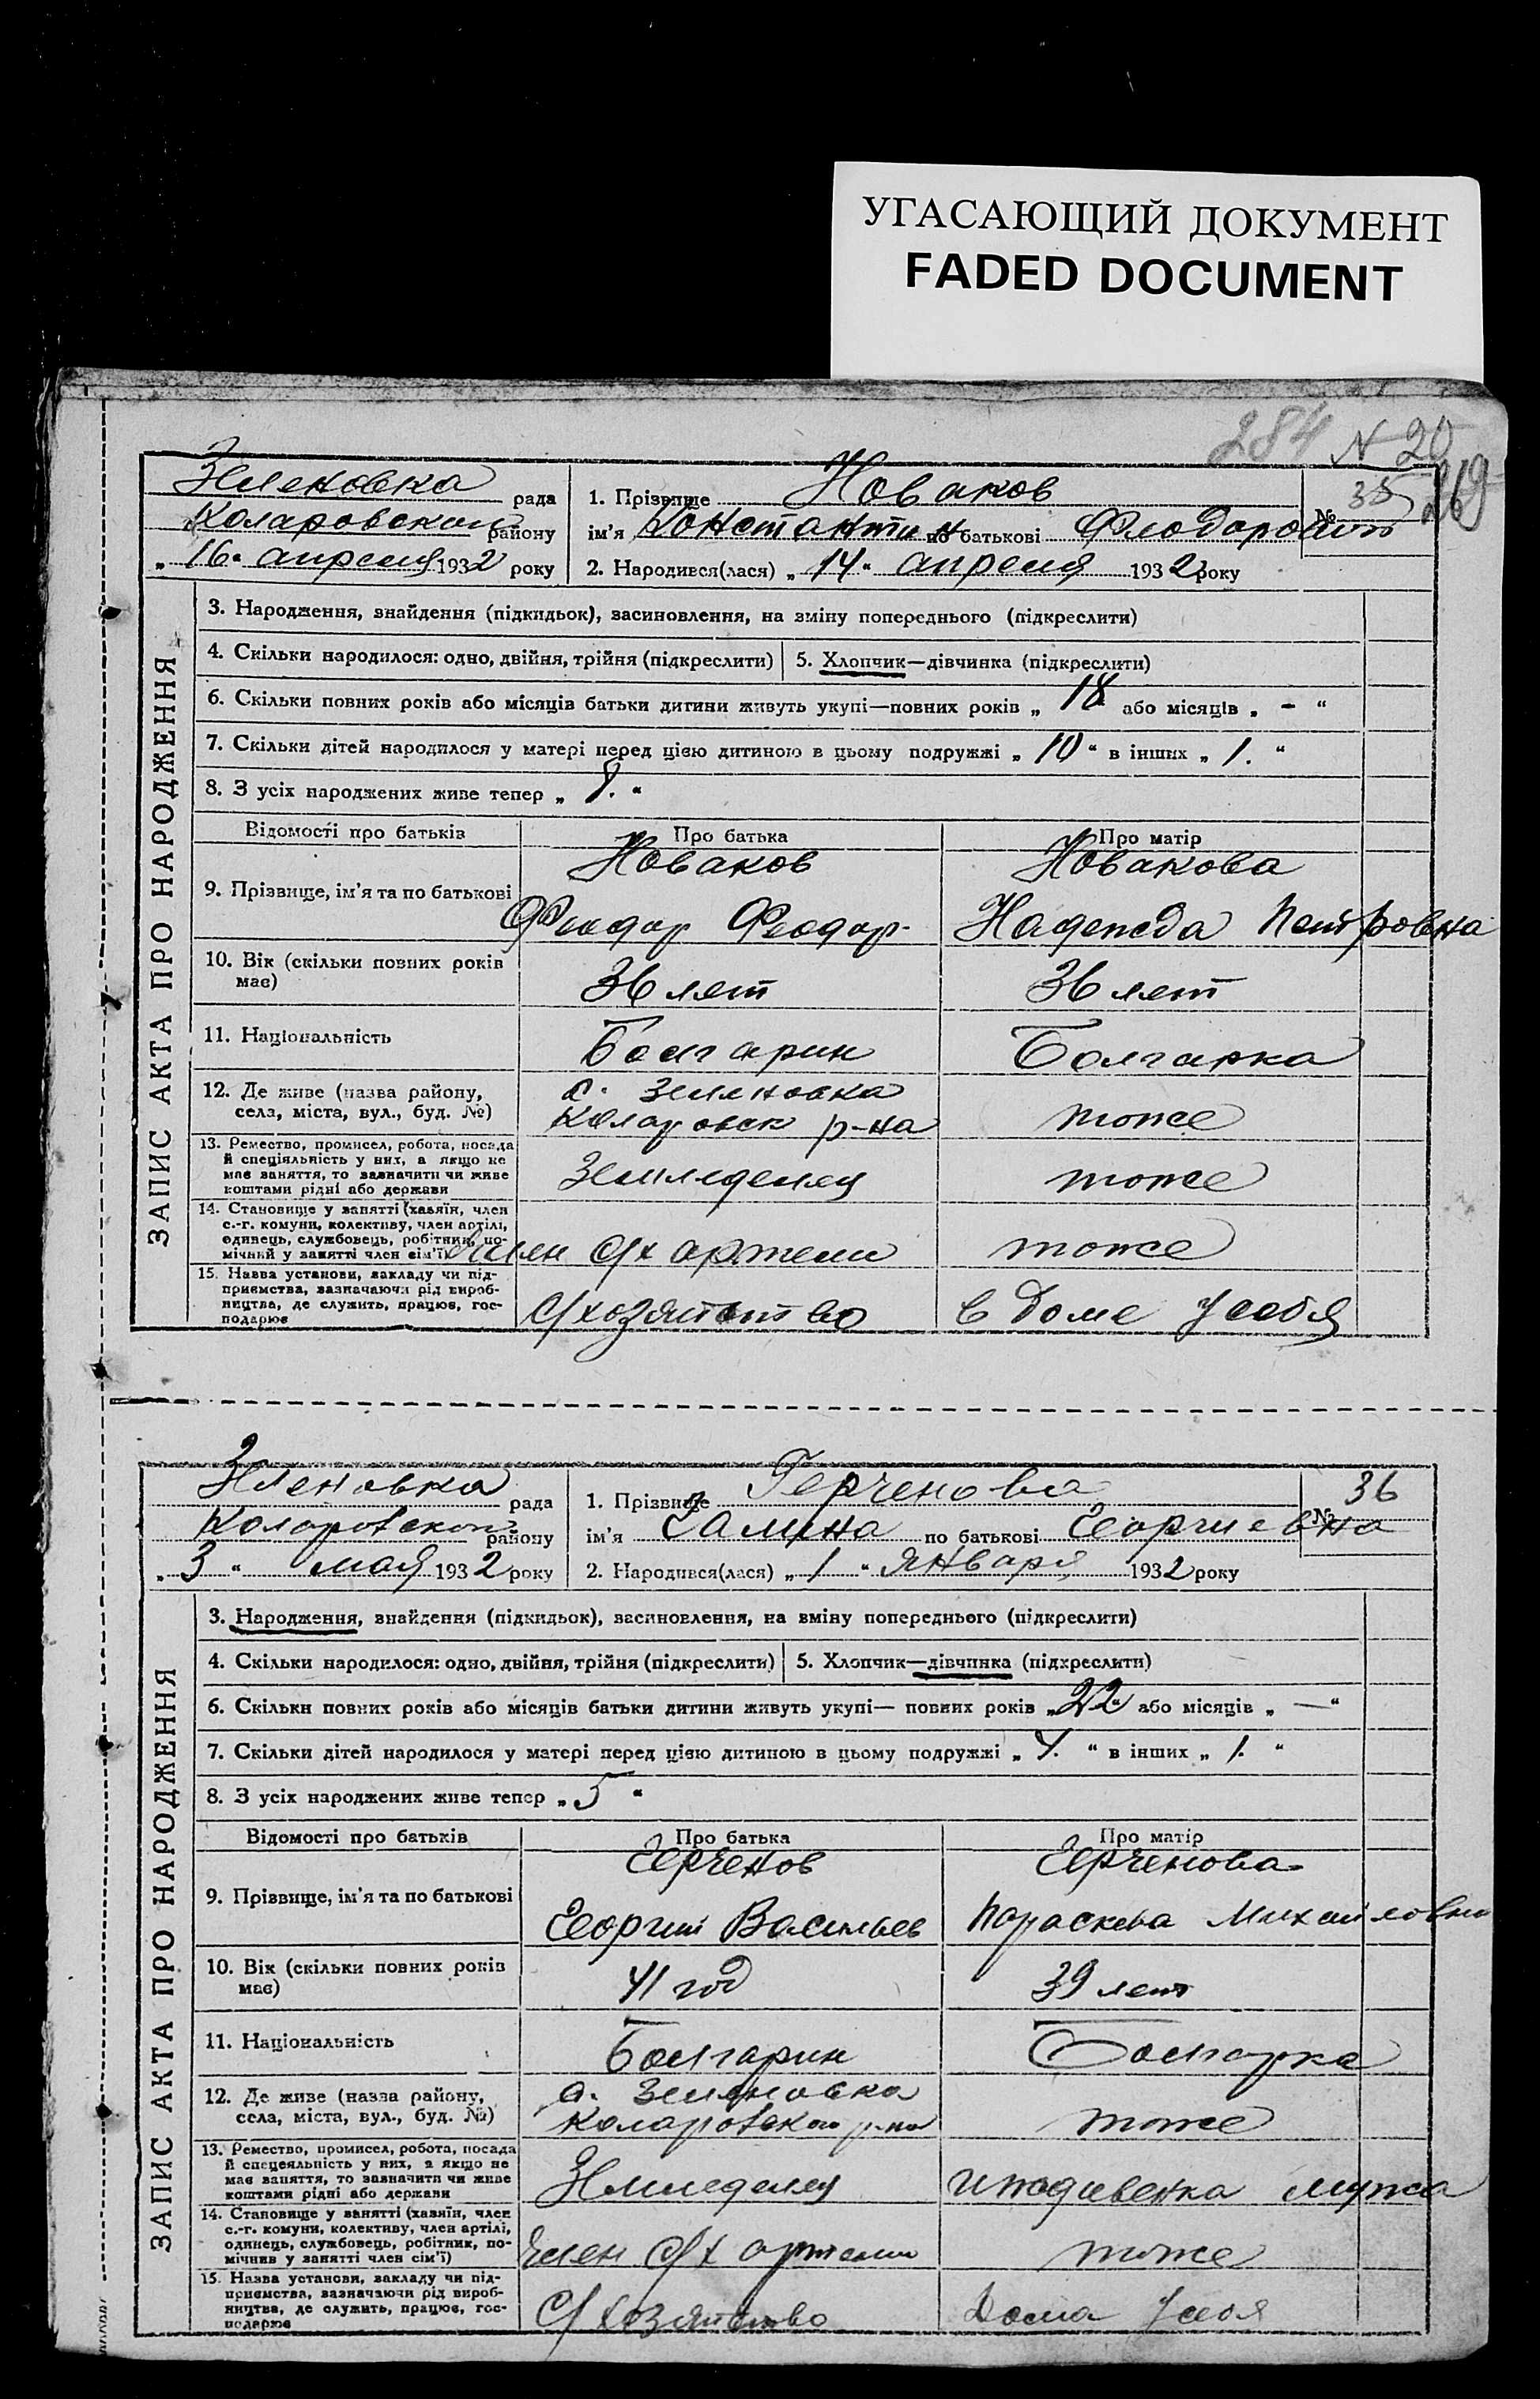 УГАСАЮЩИЙ ДОКУМЕНТ
FADED DOCUMENT
284 N 20
269
Зеленовка рада
Коларовский району
„16“ апреля 1932 року
1. Прізвище Новаков
№ 35
ім'я Константин по батькові Феодорович
2. Народився(лася) „14“ апреля 1932 року
ЗАПИС АКТА ПРО НАРОДЖЕННЯ
3. Народження, знайдення (підкидьок), засиновлення, на зміну попереднього (підкреслити)
4. Скільки народилося: одно, двійня, трійня (підкреслити) 5. Хлопчик—дівчинка (підкреслити)
6. Скільки повних років або місяців батьки дитини живуть укупі—повних років „18“ або місяців „ - “
7. Скільки дітей народилося у матері перед цією дитиною в цьому подружжі „10“ в інших „1.“
8. З усіх народжених живе тепер „8.“
Відомості про батьків Про батька Про матір
9. Прізвище, ім'я та по батькові
Новаков Новакова
Феодор Феодор. Надежда Петровна
10. Вік (скільки повних років має)
36 лет 36 лет
11. Національність Болгарин Болгарка
12. Де живе (назва району,
села, міста, вул., буд. №)
с. Зеленовка
Коларовск р-на тоже
13. Ремество, промисел, робота, посада
й спеціяльність у них, а якщо не
має заняття, то зазначити чи живе
коштами рідні або держави
Земледелец тоже
14. Становище у занятті (хазяїн, член
с.-г. комуни, колективу, член артілі,
одинець, службовець, робітник, по-
мічний у занятті член сім'ї)
член с/х артели тоже
15. Назва установи, закладу чи під-
приємства, зазначаючи рід вироб-
ництва, де служить, працює, гос-
подарює
с/хозяйство в доме у себя
Зеленовка рада
Коларовский району
„3“ мая 1932 року
1. Прізвище Герченова
№ 36
ім'я Галина по батькові Георгиевна
2. Народився(лася) „1“ января 1932 року
ЗАПИС АКТА ПРО НАРОДЖЕННЯ
3. Народження, знайдення (підкидьок), засиновлення, на зміну попереднього (підкреслити)
4. Скільки народилося: одно, двійня, трійня (підкреслити) 5. Хлопчик—дівчинка (підкреслити)
6. Скільки повних років або місяців батьки дитини живуть укупі— повних років „22“ або місяців „ — “
7. Скільки дітей народилося у матері перед цією дитиною в цьому подружжі „ “ в інших „1.“
8. З усіх народжених живе тепер „5“
Відомості про батьків Про батька Про матір
9. Прізвище, ім'я та по батькові
Герченов Герченова
Георгий Васильев Параскева Михайловна
10. Вік (скільки повних років має)
41 год 39 лет
11. Національність Болгарин Болгарка
12. Де живе (назва району,
села, міста, вул., буд. №)
с. Зеленовка
Коларовского р-на тоже
13. Ремество, промисел, робота, посада
й спецеяльність у них, а якщо не
має заняття, то зазначити чи живе
коштами рідні або держави
Земледелец иждивенка мужа
14. Становище у занятті (хазяїн, член
с.-г. комуни, колективу, член артілі,
одинець, службовець, робітник, по-
мічнив у занятті член сім'ї)
член с/х артели тоже
15. Назва установи, закладу чи під-
приємства, зазначаючи рід вироб-
ництва, де служить, працює, гос-
подарює
с/хозяйство дома у себя